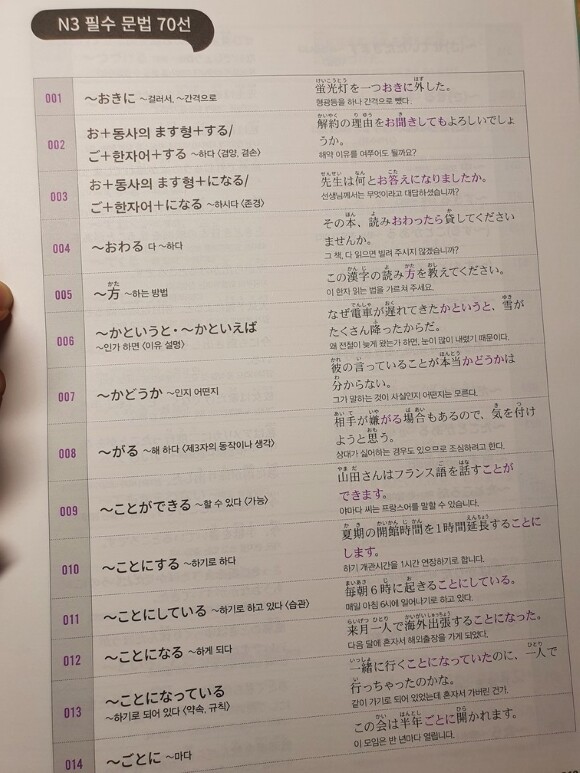 N3 필수 문법 70선
001
~おきに ~걸러서, ~간격으로
けいこうとう はず
蛍光灯を一つおきに外した。
형광등을 하나 간격으로 뺐다.
002
お+동사의 ます형+する/
ご+한자어+する ~하다 〈겸양, 겸손〉
かいやく りゆう き
解約の理由をお聞きしてもよろしいでしょ
うか。
해약 이유를 여쭈어도 될까요?
003
お+동사의 ます형+になる/
ご+한자어+になる ~하시다 〈존경〉
せんせい なん こた
先生は何とお答えになりましたか。
선생님께서는 무엇이라고 대답하셨습니까?
004
~おわる 다 ~하다
ほん よ か
その本、読みおわったら貸してください
ませんか。
그 책, 다 읽으면 빌려 주시지 않겠습니까?
005
かた
~方 ~하는 방법
かんじ よ かた おし
この漢字の読み方を教えてください。
이 한자 읽는 법을 가르쳐 주세요.
006
~かというと・~かといえば
~인가 하면 〈이유 설명〉
でんしゃ おく ゆき
なぜ電車が遅れてきたかというと、雪が
ふ
たくさん降ったからだ。
왜 전철이 늦게 왔는가 하면, 눈이 많이 내렸기 때문이다.
007
~かどうか ~인지 어떤지
かれ い ほんとう
彼の言っていることが本当かどうかは
わ
分からない。
그가 말하는 것이 사실인지 어떤지는 모른다.
008
~がる ~해 하다 〈제3자의 동작이나 생각〉
あいて いや ばあい き つ
相手が嫌がる場合もあるので、気を付け
おも
ようと思う。
상대가 싫어하는 경우도 있으므로 조심하려고 한다.
009
~ことができる ~할 수 있다 〈가능〉
やまだ ご はな
山田さんはフランス語を話すことが
できます。
야마다 씨는 프랑스어를 말할 수 있습니다.
010
~ことにする ~하기로 하다
かき かいかんじかん えんちょう
夏期の開館時間を1時間延長することに
します。
하기 개관시간을 1시간 연장하기로 합니다.
011
~ことにしている ~하기로 하고 있다 〈습관〉
まいあさ じ お
毎朝6時に起きることにしている。
매일 아침 6시에 일어나기로 하고 있다.
012
~ことになる ~하게 되다
らいげつ ひとり かいがいしゅっちょう
来月一人で海外出張することになった。
다음 달에 혼자서 해외출장을 가게 되었다.
013
~ことになっている
~하기로 되어 있다 〈약속, 규칙〉
いっしょ ひとり
一緒に行くことになっていたのに、一人で
い
行っちゃったのかな。
같이 가기로 되어 있었는데 혼자서 가버린 건가.
014
~ごとに ~마다
かい はんとし ひら
この会は半年ごとに開かれます。
이 모임은 반 년마다 열립니다.